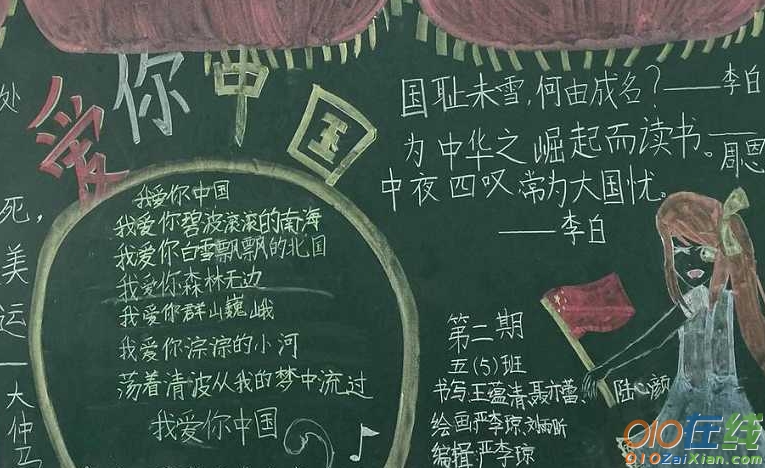 处
死，
美
运
—
大
仲
马
爱你中国
我爱你中国
我爱你碧波滚滚的南海
我爱你白雪飘飘的北国
我爱你森林无边
我爱你群山巍峨
我爱你淙淙的小河
荡着清波从我的梦中流过
我爱你中国
国耻未雪，何由成名？——李白
为中华之崛起而读书。——周恩
中夜四叹，常为大国忧。
——李白
第二期
五（5）班
书写：王蕴清 聂亦蕾 陆心颜
绘画：严李琼 刘雨昕
编辑：严李琼
010在线
010ZaiXian.com